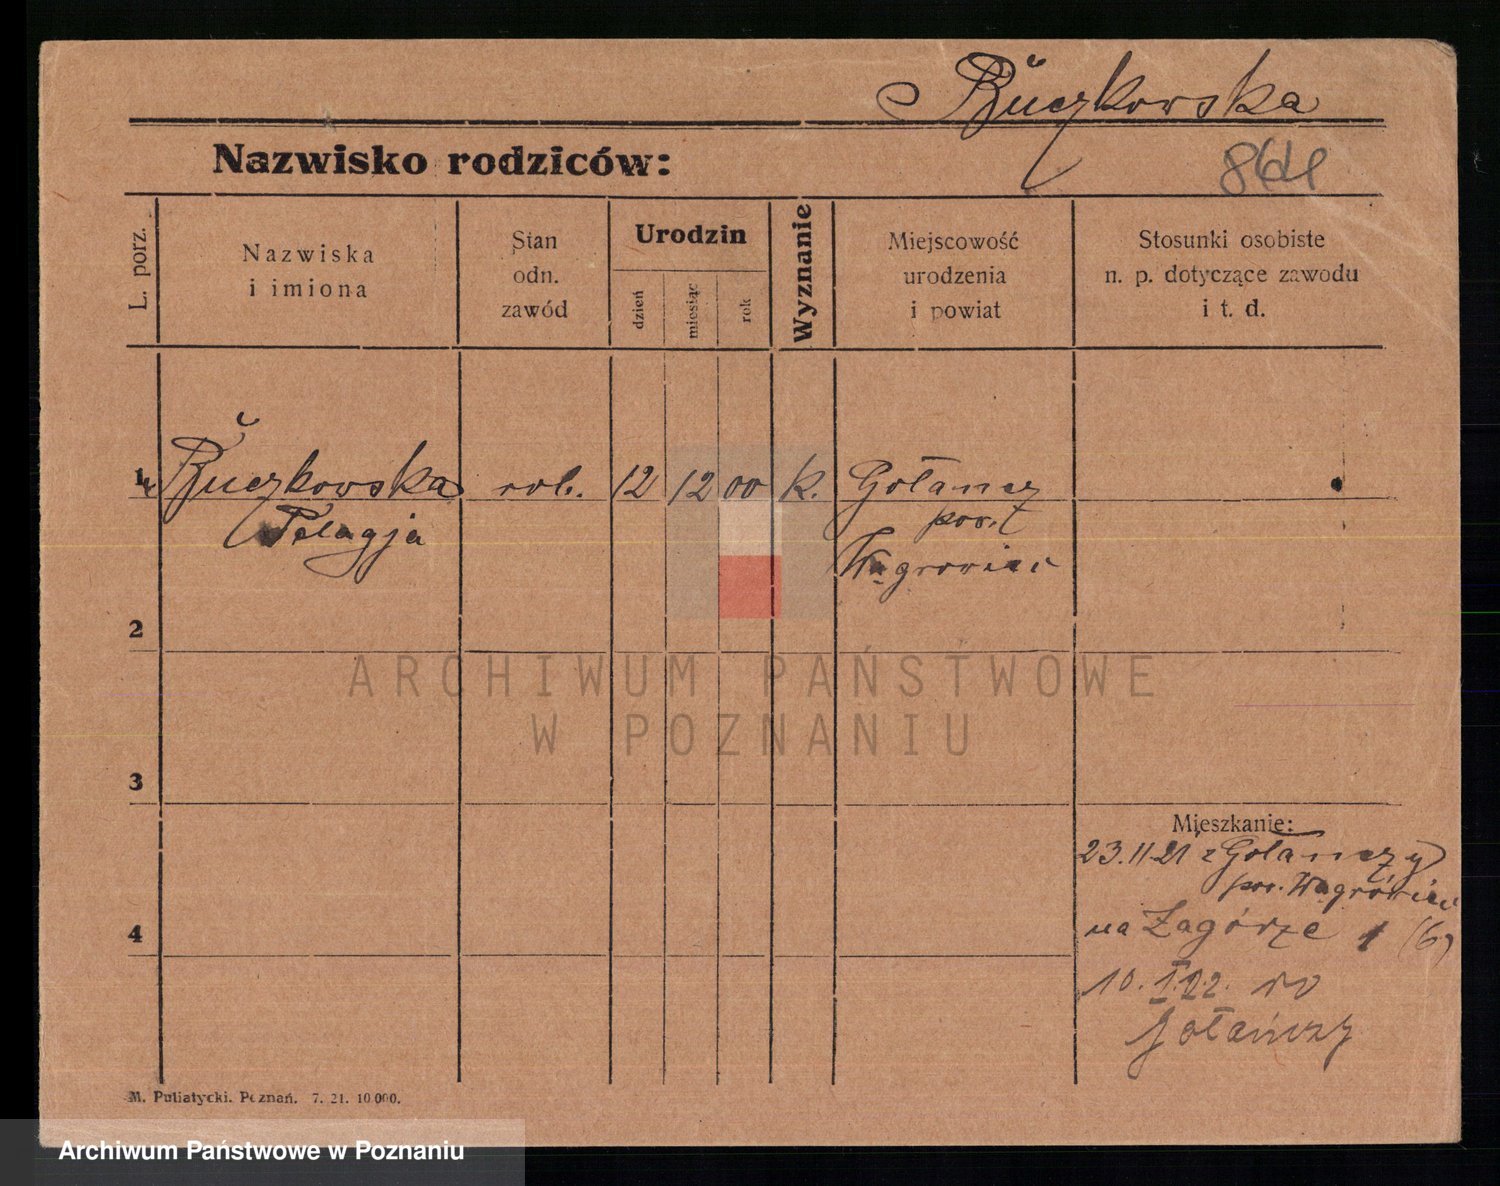 Buczkowska
Nazwisko rodziców:
L. porz.
Nazwiska
i imiona
Stan
odn.
zawód
Urodzin
dzień
miesiąc
rok
Wyznanie
Miejscowość
urodzenia
i powiat
Stosunki osobiste
n. p. dotyczące zawodu
i t. d.
1 Buczkowska rob. 12 12 00 k. Gołańcz
Pelagja pow.
Wągrowiec
2
3
4
Mieszkanie:
23.11.21 z Gołańczy
pow. Wągrówiec
na Zagórze 1 (6)
10.I.22. do
Gołańczy
M. Putiatycki. Poznań. 7. 21. 10.000.
ARCHIWUM PAŃSTWOWE
W POZNANIU
Archiwum Państwowe w Poznaniu